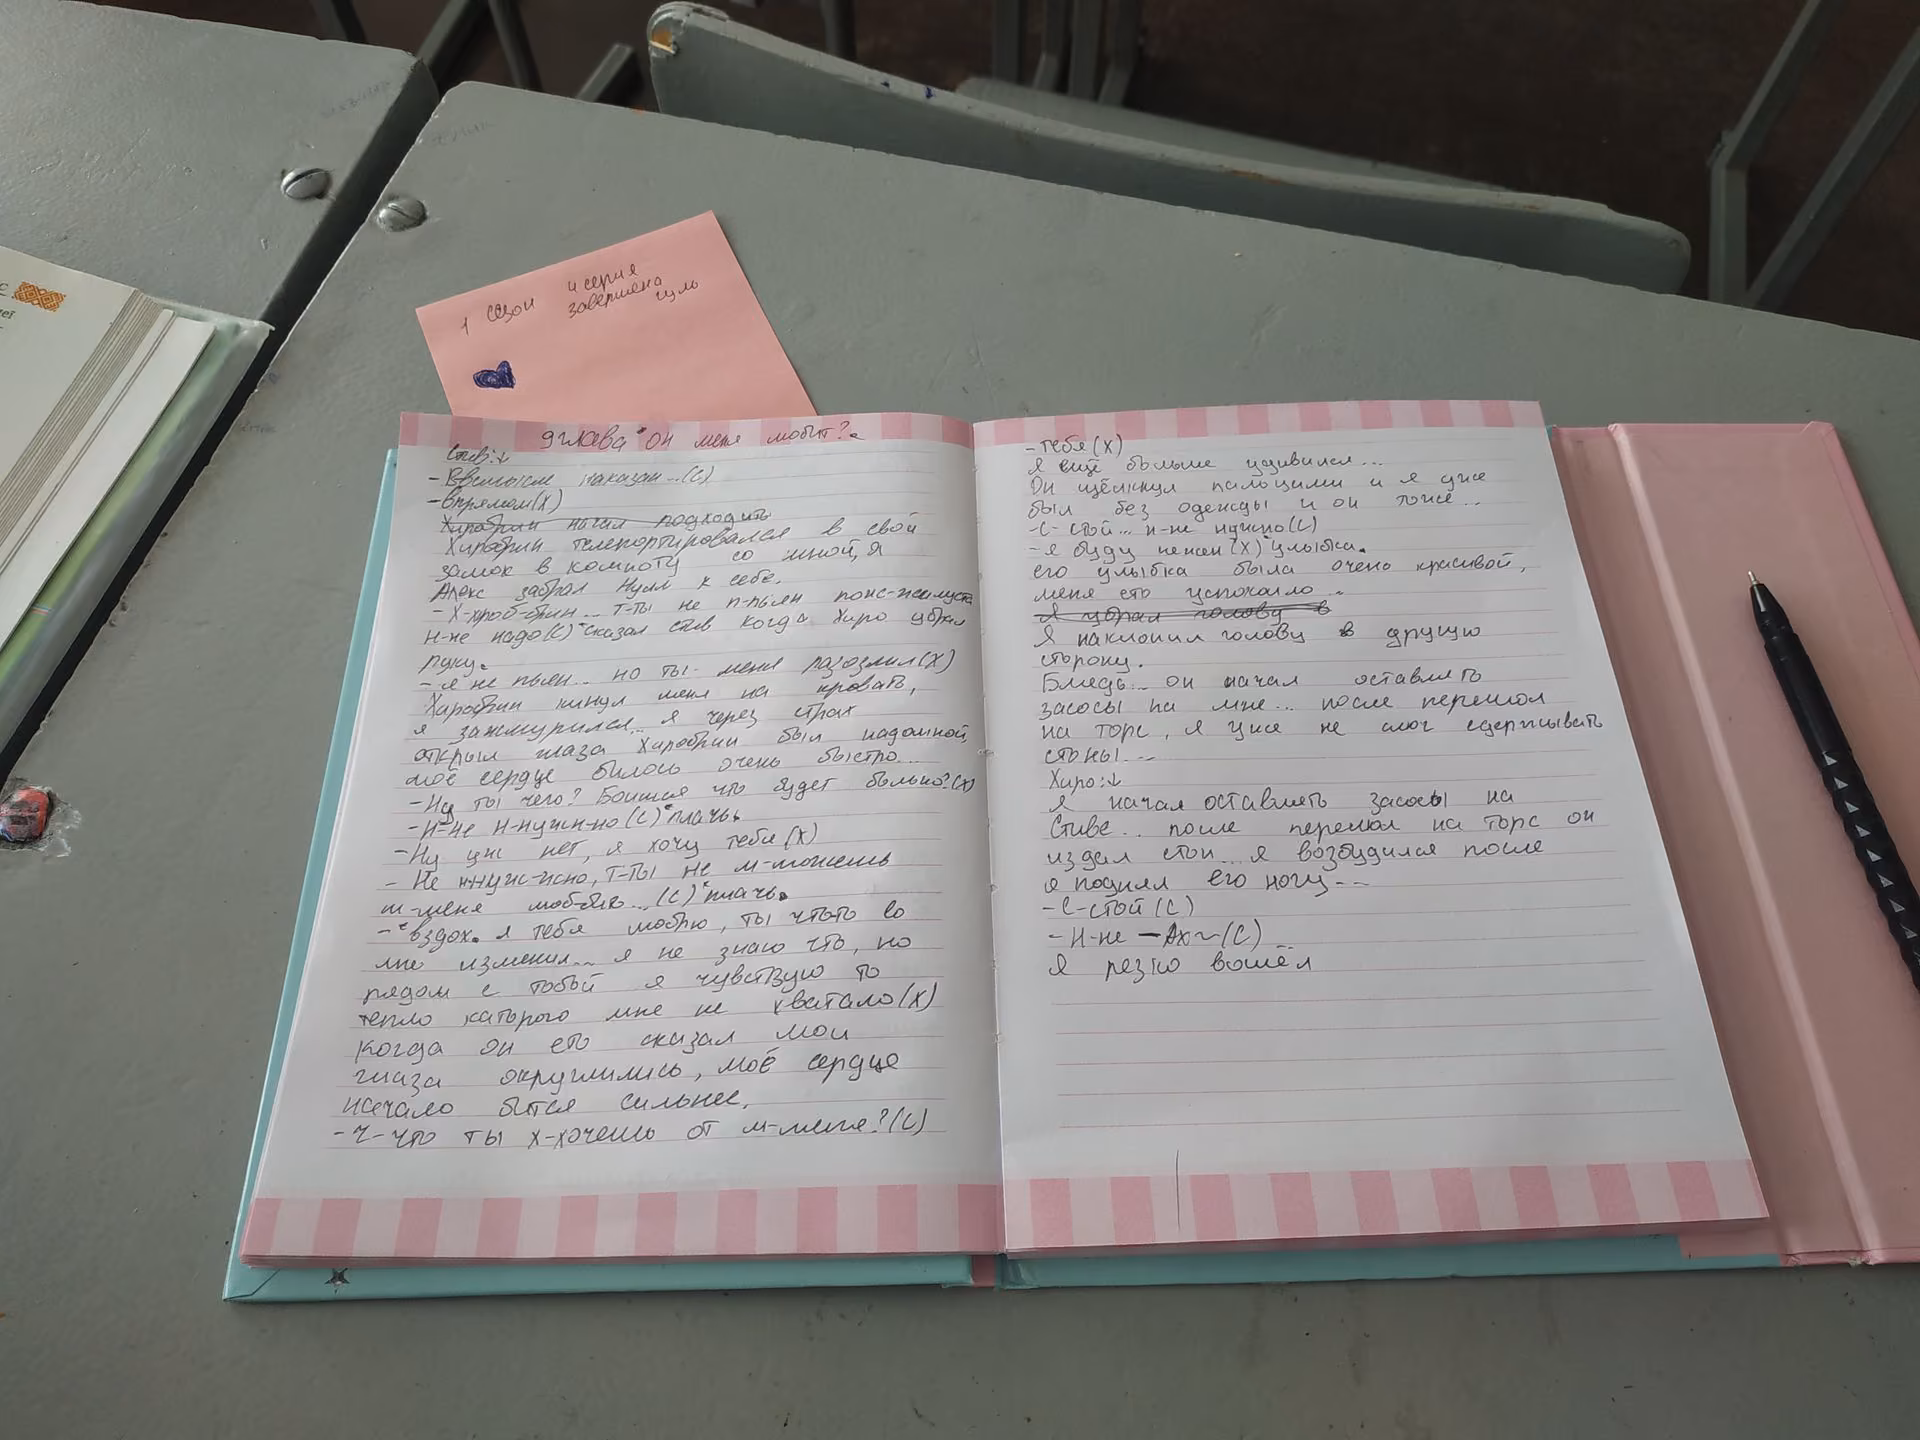 1 сезон 4 серия
завершена
9 глава "он меня любит?"
Стив:↓
-Ввсмысле наказан...(С)
-впрямом(Х)
Хиробрин начал подходить
Хиробрин телепортировался в свой
замок в комнату со мной, а
Алекс забрал Нулл к себе.
-Х-хроб-брин... т-ты не п-пьян пожс-жалуста
н-не надо(С)"сказал стив когда Хиро убрал
руку"
-я не пьян... но ты меня разозлил(Х)
Хиробрин кинул меня на кровать,
я зажмурился... я через страх
открыл глаза Хиробрин был надомной,
моё сердце билось очень быстро...
-Ну ты чего? Боишся что будет больно?(Х)
-Н-не н-нужн-но(С)"плачь"
-Ну уж нет, я хочу тебя(Х)
-Не ннуж-жно, т-ты не м-можешь
м-меня люб-бить...(С)"плачь"
-"вздох" я тебя люблю, ты чтото во
мне изменил... я не знаю что, но
рядом с тобой я чувствую то
тепло каторого мне не хватало(Х)
Когда он ето сказал мои
глаза округлились, моё сердце
начало бится сильнее.
-Ч-что ты х-хочешь от м-меня?(С)
-тебя(Х)
Я ещё больше удивился...
Он щёлкнул пальцами и я уже
был без одежды и он тоже...
-С-стой... н-не нужно(С)
-я буду нежен(Х)"улыбка"
его улыбка была очень красивой,
меня ето успокоило...
Я убрал голову в
Я наклонил голову в другую
сторону.
Блядь... он начал оставлять
засосы на мне... после перешол
на торс, я уже не смог сдерживать
стоны...
Хиро:↓
я начал оставлять засосы на
Стиве... после перешол на торс он
издал стон... я возбудился после
я поднял его ногу--
-С-стой(С)
-Н-не -Ах~(С)...
Я резко вошёл